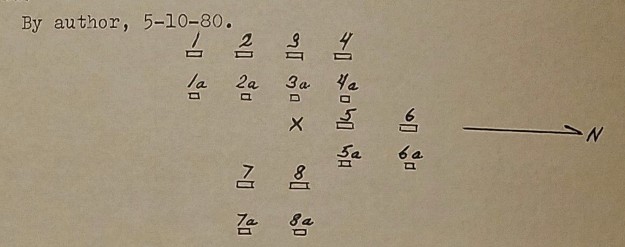 By author, 5-10-80.
1 2 3 4
1a 2a 3a 4a
X 5 6
N
5a 6a
7 8
7a 8a